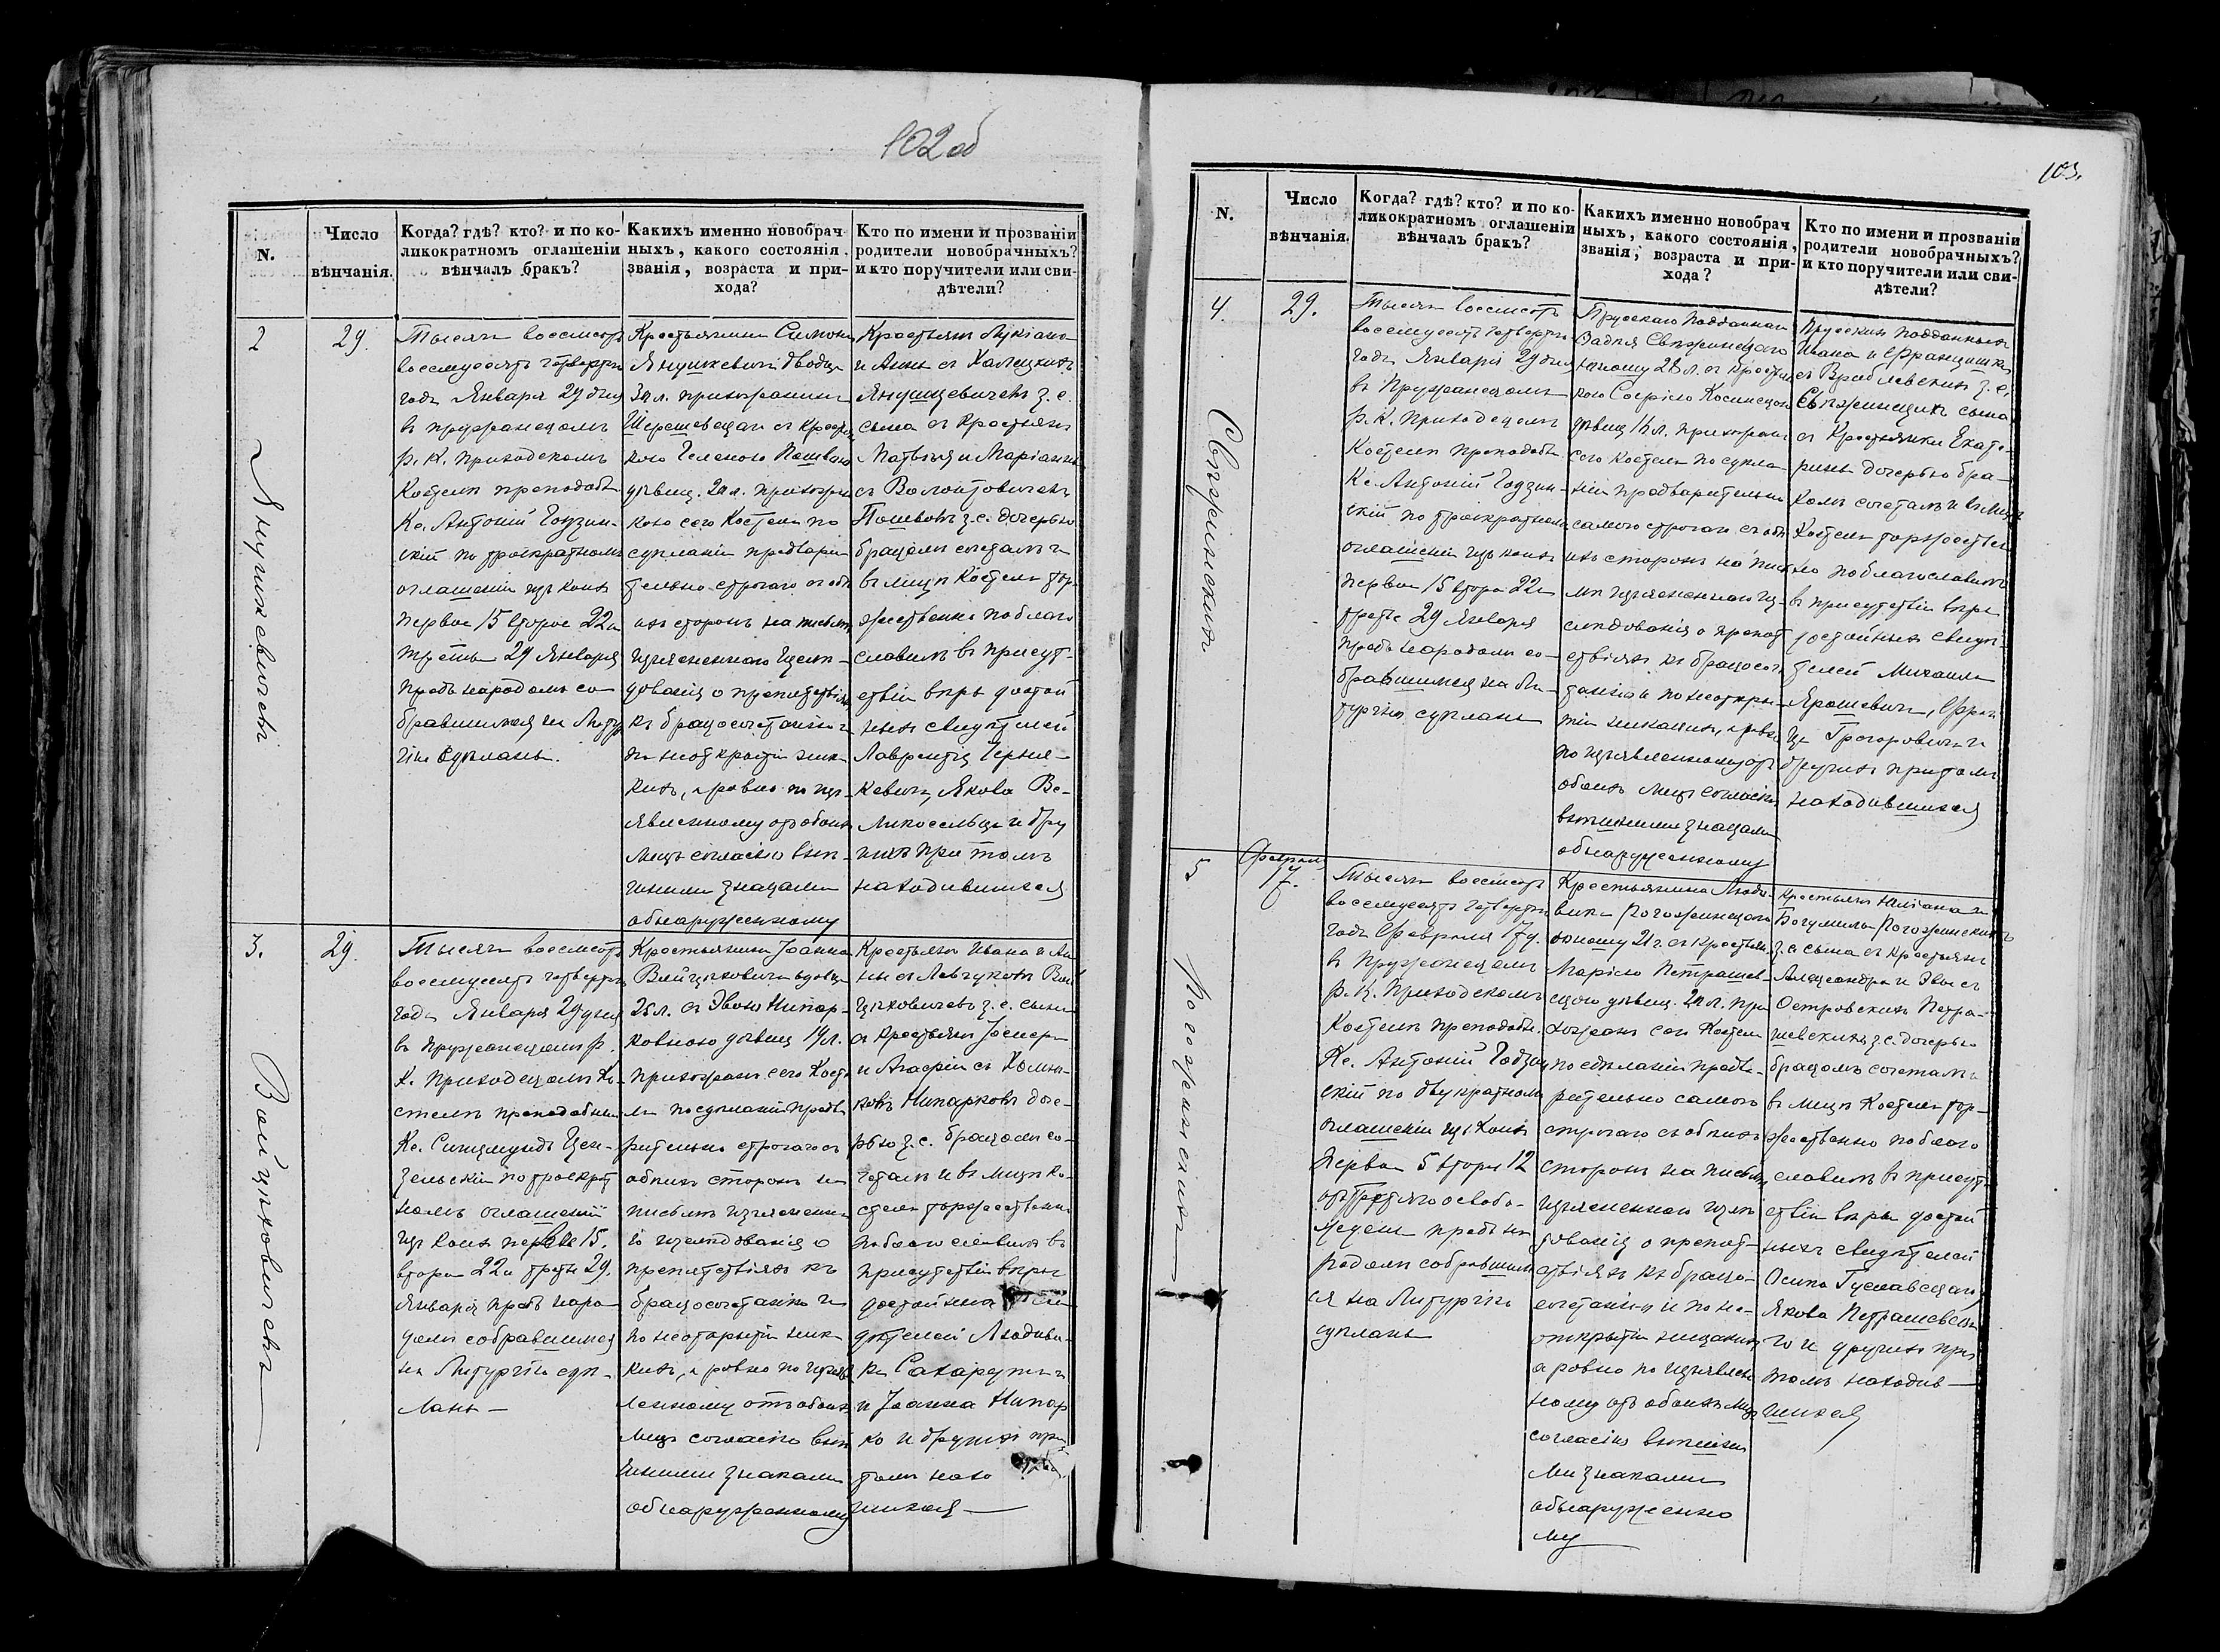 102 об
N.
Число
вѣнчанія.
Когда? гдѣ? кто? и по ко-
ликократномъ оглашеніи
вѣнчалъ бракъ?
Какихъ именно новобрач
ныхъ, какого состоянія,
званія, возраста и при-
хода?
Кто по имени и прозваніи
родители новобрачныхъ?
и кто поручители или сви-
дѣтели?
2
Янушкевичъ
29.
Тысяча восемсотъ
восемдесятъ четвертаго
года Января 29 дня
въ Пружанскомъ
Р. К. Приходскомъ
Костелѣ преподобн.
Кс. Антоній Годзин-
скій по троекратномъ
оглашеніи изъ коихъ
первое 15 второе 22 и
третье 29 Января
предъ народомъ со-
бравшимся на Литур
гію сдѣланы.
Крестьянина Симона
Янушкевича вдовца
л. прихожанина
Шерешевскаго съ Крестьян
кою
дѣвиц. 20 л. прихожан
кою сего Костела по
сдѣланіи предвари
тельно строгаго съ обѣ
ихъ сторонъ на письмѣ
изъясненнаго изслѣ-
дованія о препятствіяхъ
къ бракосочетанію и
по неоткрытіи ника
кихъ, а равно по изъ-
явленному отъ обоихъ
лицъ согласію внѣ-
шними знаками
обнаруженному
Крестьянъ Лукіана
и Анны съ Халецкихъ
Янушкевичевъ з. с.
сына съ Крестьянъ
Матвѣя и Маріанны
съ Волонтовичевъ
з. с. дочерью
бракомъ сочеталъ и
въ лицѣ Костела тор-
жественно поблаго
словилъ въ присут-
ствіи вѣры достой
ныхъ свидѣтелей
Лаврентія Черня-
кевича, Якова Ве-
ликосельца и дру
гихъ при томъ
находившихся
3.
Войцѣховичъ
29.
Тысяча восемсотъ
восемдесятъ четвертаго
года Января 29 дня
въ Пружанскомъ Р.
К. Приходскомъ Ко-
стелѣ преподобный
Кс. Сигизмундъ Цен-
зельскій по троекрат
номъ оглашеніи
изъ коихъ первое 15.
второе 22 и третье 29.
Января предъ наро-
домъ собравшимся
на Литургію сдѣ-
ланы —
Крестьянина Іоанна
Войцѣховича вдовца
25 л. съ Эвою Нипар-
ковною дѣвиц. 19 л.
прихожанъ сего Косте
ла по сдѣланіи предва
рительно строгаго съ
обѣихъ сторонъ на
письмѣ изъясненна
го изслѣдованія о
препятствіяхъ къ
бракосочетанію и
по неоткрытіи ника
кихъ, а равно по изъяв
ленному отъ обоихъ
лицъ согласію внѣ
шними знаками
обнаруженному
Крестьянъ Ивана и Ан
ны съ Левчуковъ Вой
цѣховичевъ з. с. сына
съ Крестьянъ
и Агафіи съ
Нипарковъ доче-
рью з. с. бракомъ со-
четалъ и въ лицѣ Ко-
стела торжественно
поблагословилъ въ
присутствіи вѣры
достойныхъ сви
дѣтелей Людови-
ка Сахарути и
и Іоанна Нипар
ко и другихъ при
томъ нахо
шихся —
103.
N.
Число
вѣнчанія.
Когда? гдѣ? кто? и по ко-
ликократномъ оглашеніи
вѣнчалъ бракъ?
Какихъ именно новобрач
ныхъ, какого состоянія,
званія, возраста и при-
хода?
Кто по имени и прозваніи
родители новобрачныхъ?
и кто поручители или сви-
дѣтели?
4.
29.
Тысяча восемсотъ
восемдесятъ четвертаго
года Января 29 дня
въ Пружанскомъ
Р. К. Приходскомъ
Костелѣ преподобн.
Кс. Антоній Годзин-
скій по троекратномъ
оглашеніи изъ коихъ
первое 15 второе 22 и
третье 29 Января
предъ народомъ со-
бравшимся на Ли-
тургію сдѣланы
Прусскаго Подданнаго
юношу 28 л. съ Крестьян
кою Софією Косинскою
дѣвиц. 16 л. прихожан
сего Костела по сдѣла
ніи предварительно
самого строгаго съ обѣ
ихъ сторонъ на пись
мѣ изъясненнаго из-
слѣдованія о препят
ствіяхъ къ бракосоче
танію и по неоткры-
тіи никакихъ, а равно
по изъявленному отъ
обоихъ лицъ согласію
внѣшними знаками
обнаруженному
Прусскихъ Подданныхъ
Ивана и Францишки
съ Врублевскихъ з. с.
сына
съ Крестьянки Екате-
рины дочерью бра-
комъ сочеталъ и въ лицѣ
Костела торжествен
но поблагословилъ
въ присутствіи вѣры
достойныхъ свидѣ-
телей Михаила
Ярошевича, Фран
ца Грегоровича и
другихъ при томъ
находившихся
5
Рогожинскихъ
Февраля
17.
Тысяча восемсотъ
восемдесятъ четвертаго
года Февраля 17 д.
въ Пружанскомъ
Р. К. Приходскомъ
Костелѣ преподобн.
Кс. Антоній Годзин
скій по двукратномъ
оглашеніи изъ коихъ
первое 5 второе 12
отъ третьяго освобо-
ждены предъ на
родомъ собравшим
ся на Литургію
сдѣланы
Крестьянина Людо-
вика Рогожинскаго
юношу 21 г. съ Крестьян.
Маріею Петрашев-
скою дѣвиц. 20 л. при
хожанъ сего Костела
по сдѣланіи предва-
рительно самого
строгаго съ обѣихъ
сторонъ на письмѣ
изъясненнаго изслѣ
дованія о препят-
ствіяхъ къ брако-
сочетанію и по не-
открытіи никакихъ
а равно по изъявлен
ному отъ обоихъ лицъ
согласію внѣшни
ми знаками
обнаруженно
му
Крестьянъ Юліана и
Богумилы Рогожинскихъ
з. с. сына съ Крестьянъ
Александра и Эвы съ
Островскихъ Петра-
шевскихъ з. с. дочерью
бракомъ сочеталъ и
въ лицѣ Костела тор-
жественно поблаго
словилъ въ присут-
ствіи вѣры достой
ныхъ свидѣтелей
Осипа Гуславскаго,
Якова Петрашевска
го и другихъ при
томъ находив —
шихся